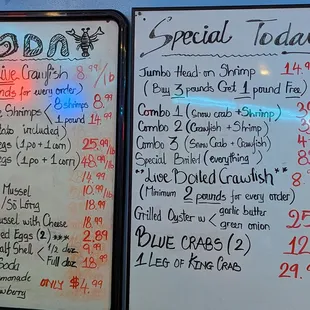 ODAY
Live Crawfish 8.99/lb
nds for every order)
8 shrimps 8.99
e Shrimps
1 pound 14.99
tato included)
egs (1 po + 1 corn) 25.99
egs (1 po + 1 corn) 48.99
14.99
Mussel 10.99
/ Sì Lông 18.99
ussel with Cheese 18.99
ed Eggs (2) 2.89
alf Shell 1/2 doz 9.99
Full doz 18.99
Soda
emonade ONLY $4.99
wberry
Special Today
Jumbo Head-on Shrimp 14.9
(Buy 3 pounds Get 1 pound Free)
Combo 1 (Snow crab + Shrimp)
Combo 2 (Crawfish + Shrimp)
Combo 3 (Snow Crab + Crawfish)
Special Boiled (everything) 8
**Live Boiled Crawfish** 8.
(Minimum 2 pounds for every order)
Grilled Oyster w/ garlic butter 25
green onion
BLUE CRABS (2) 12
1 LEG OF KING CRAB 29.9